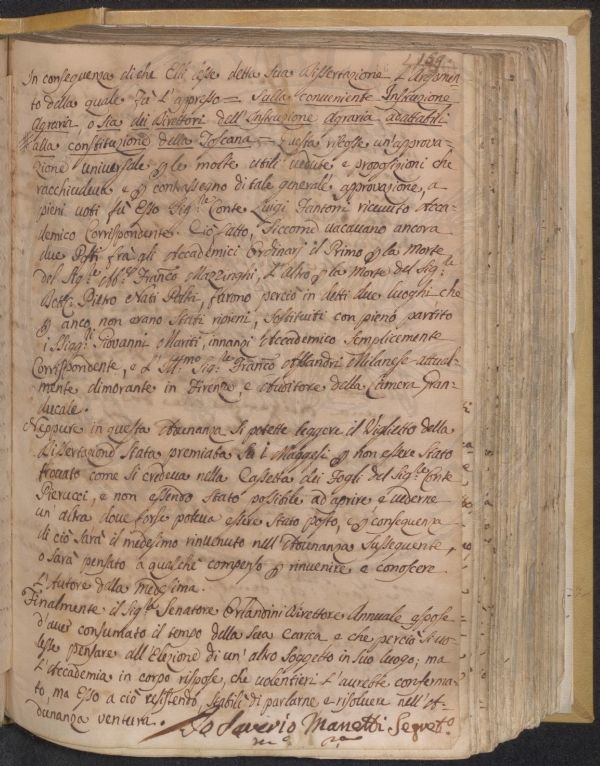 159.
In conseguenza di che Elli lesse detta sua Dissertazione L'Argomen-
to della quale fa l'appresso = Sulla conveniente Instruzione
Agraria, o sia dei Direttori dell'Instruzione Agraria adattabili
alla constituzione della Toscana = questa riscosse un'approva-
zione universale p le molte utili vedute, e proposizioni che
racchiudeva e p contrassegno di tale generale approvazione, a
pieni voti fù Esso Sig.re Conte Luigi Fantoni ricevuto Acca-
demico Corrispondente. Ciò fatto, siccome vacavano ancora
due Posti frà gli Accademici Ordinarj il Primo p la morte
del Sig.e Ab.e Franco Mazzinghi, L'altro p la morte del Sig.re
Dott.e Pietro Nati Poltri, furono perciò in detti due luoghi che
p anco non erano stati ripieni, sostituiti con pieno partito
i Sigg.ri Giovanni Mariti, innanzi Accademico semplicemente
Corrispondente, e L'Ill.mo Sig.re Franco Alesandri Milanese attual-
mente dimorante in Firenze, e Auditore della Camera Gran-
ducale.
Neppure in questa Adunanza si potette leggere il Viglietto della
Dissertazione stata premiata su i Maggesi p non essere stato
trovato come si credeva nella Cassetta dei Fogli del Sig.re Conte
Pierucci, e non essendo stato possibile ad aprire e vederne
un'altra dove forse poteva essere stato posto, e p conseguenza
di ciò sarà il medesimo rinvenuto nell'Adunanza susseguente,
o sarà pensato a qualche compenso p rinvenire e conoscere
L'Autore della medesima.
Finalmente il Sig.re Senatore Orlandini Direttore Annuale espose
d'aver consumato il tempo della sua carica e che perciò si vo-
lesse pensare all'Elezione di un'altro Soggetto in suo luogo; ma
L'Accademia in corpo rispose, che volentieri L'avrebbe conferma-
to, ma Esso a ciò resistendo, stabilì di parlarne e risolvere nell'A-
dunanza ventura.
Io Saverio Manetti Segret.o